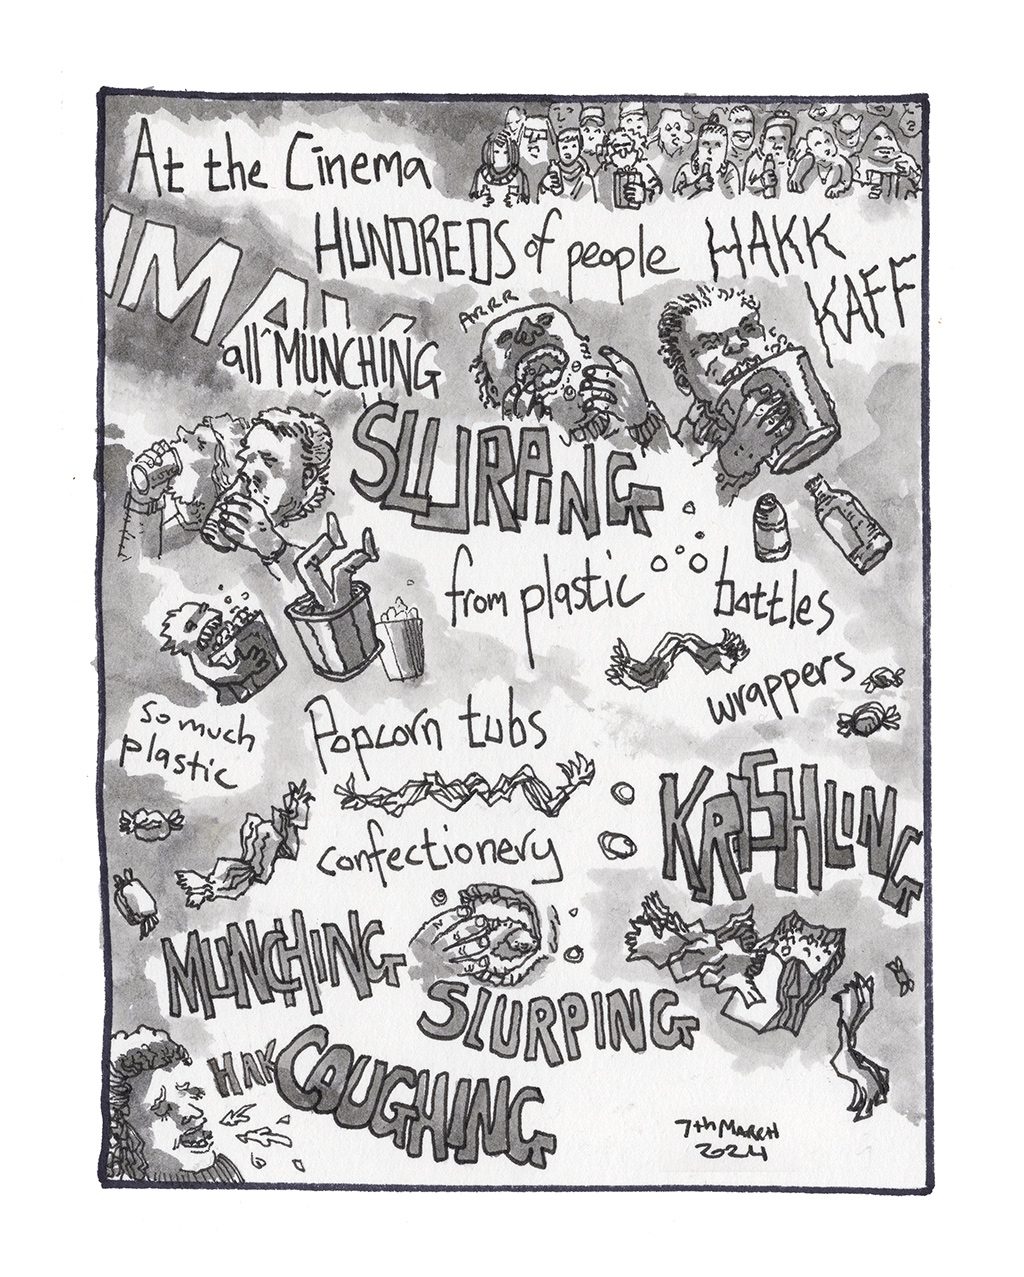 At the Cinema
HUNDREDS of people
HAKK
KAFF
IMAX
ARRR
all MUNCHING
SLURPING
from plastic bottles
wrappers
so much
plastic
Popcorn tubs
KRISHLING
confectionery
MUNCHING
SLURPING
HAK
CAUGHING
7th MARCH
2024